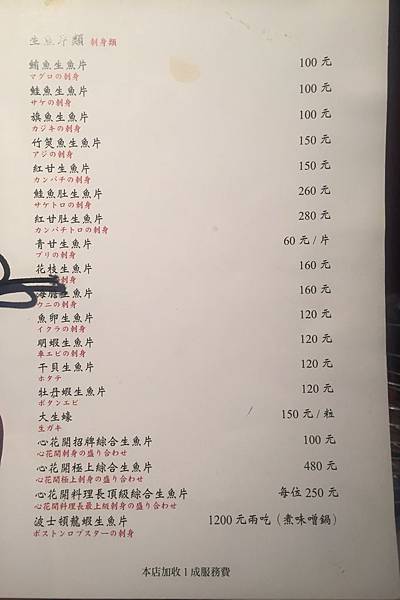 生魚片類 刺身類
鮪魚生魚片 100 元
マグロの刺身
鮭魚生魚片 100 元
サケの刺身
旗魚生魚片 100 元
カジキの刺身
竹筴魚生魚片 150 元
アジの刺身
紅甘生魚片 150 元
カンパチの刺身
鮭魚肚生魚片 260 元
サケトロの刺身
紅甘肚生魚片 280 元
カンパチトロの刺身
青甘生魚片 60 元 / 片
ブリの刺身
花枝生魚片 160 元
刺身
海膽生魚片 160 元
ウニの刺身
魚卵生魚片 120 元
イクラの刺身
明蝦生魚片 120 元
車エビの刺身
干貝生魚片 120 元
ホタテ
牡丹蝦生魚片 120 元
ボタンエビ
大生蠔 150 元 / 粒
生ガキ
心花開招牌綜合生魚片 100 元
心花開刺身の盛り合わせ
心花開極上綜合生魚片 480 元
心花開極上刺身の盛り合わせ
心花開料理長頂級綜合生魚片 每位 250 元
心花開料理長最上級刺身の盛り合わせ
波士頓龍蝦生魚片 1200 元兩吃（煮味噌鍋）
ボストンロブスターの刺身
本店加收 1 成服務費